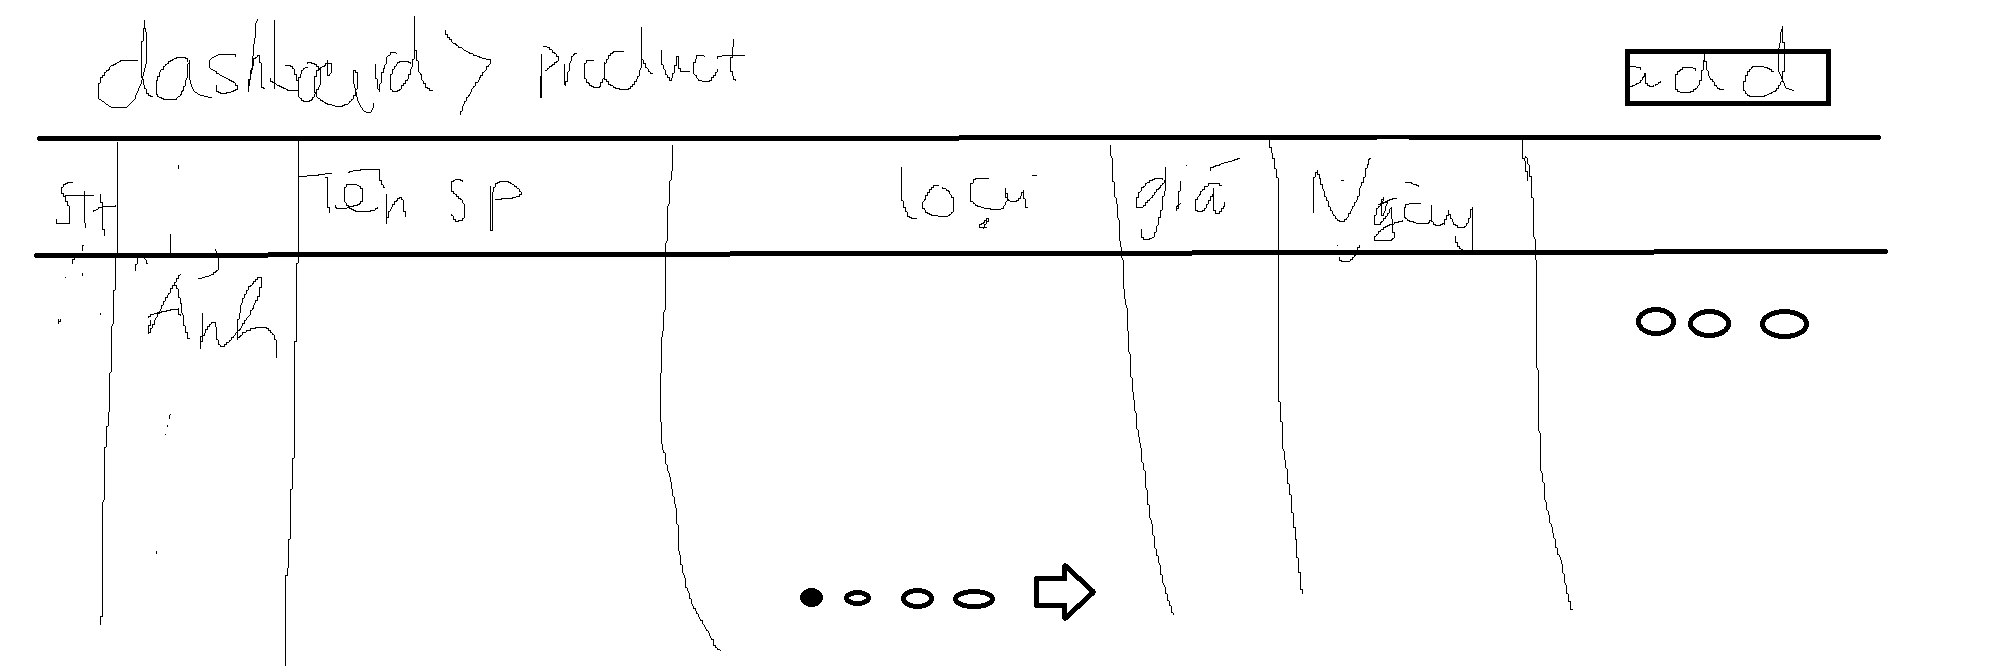 dashboard > product add
Stt Tên SP loại giá Ngày
Ảnh